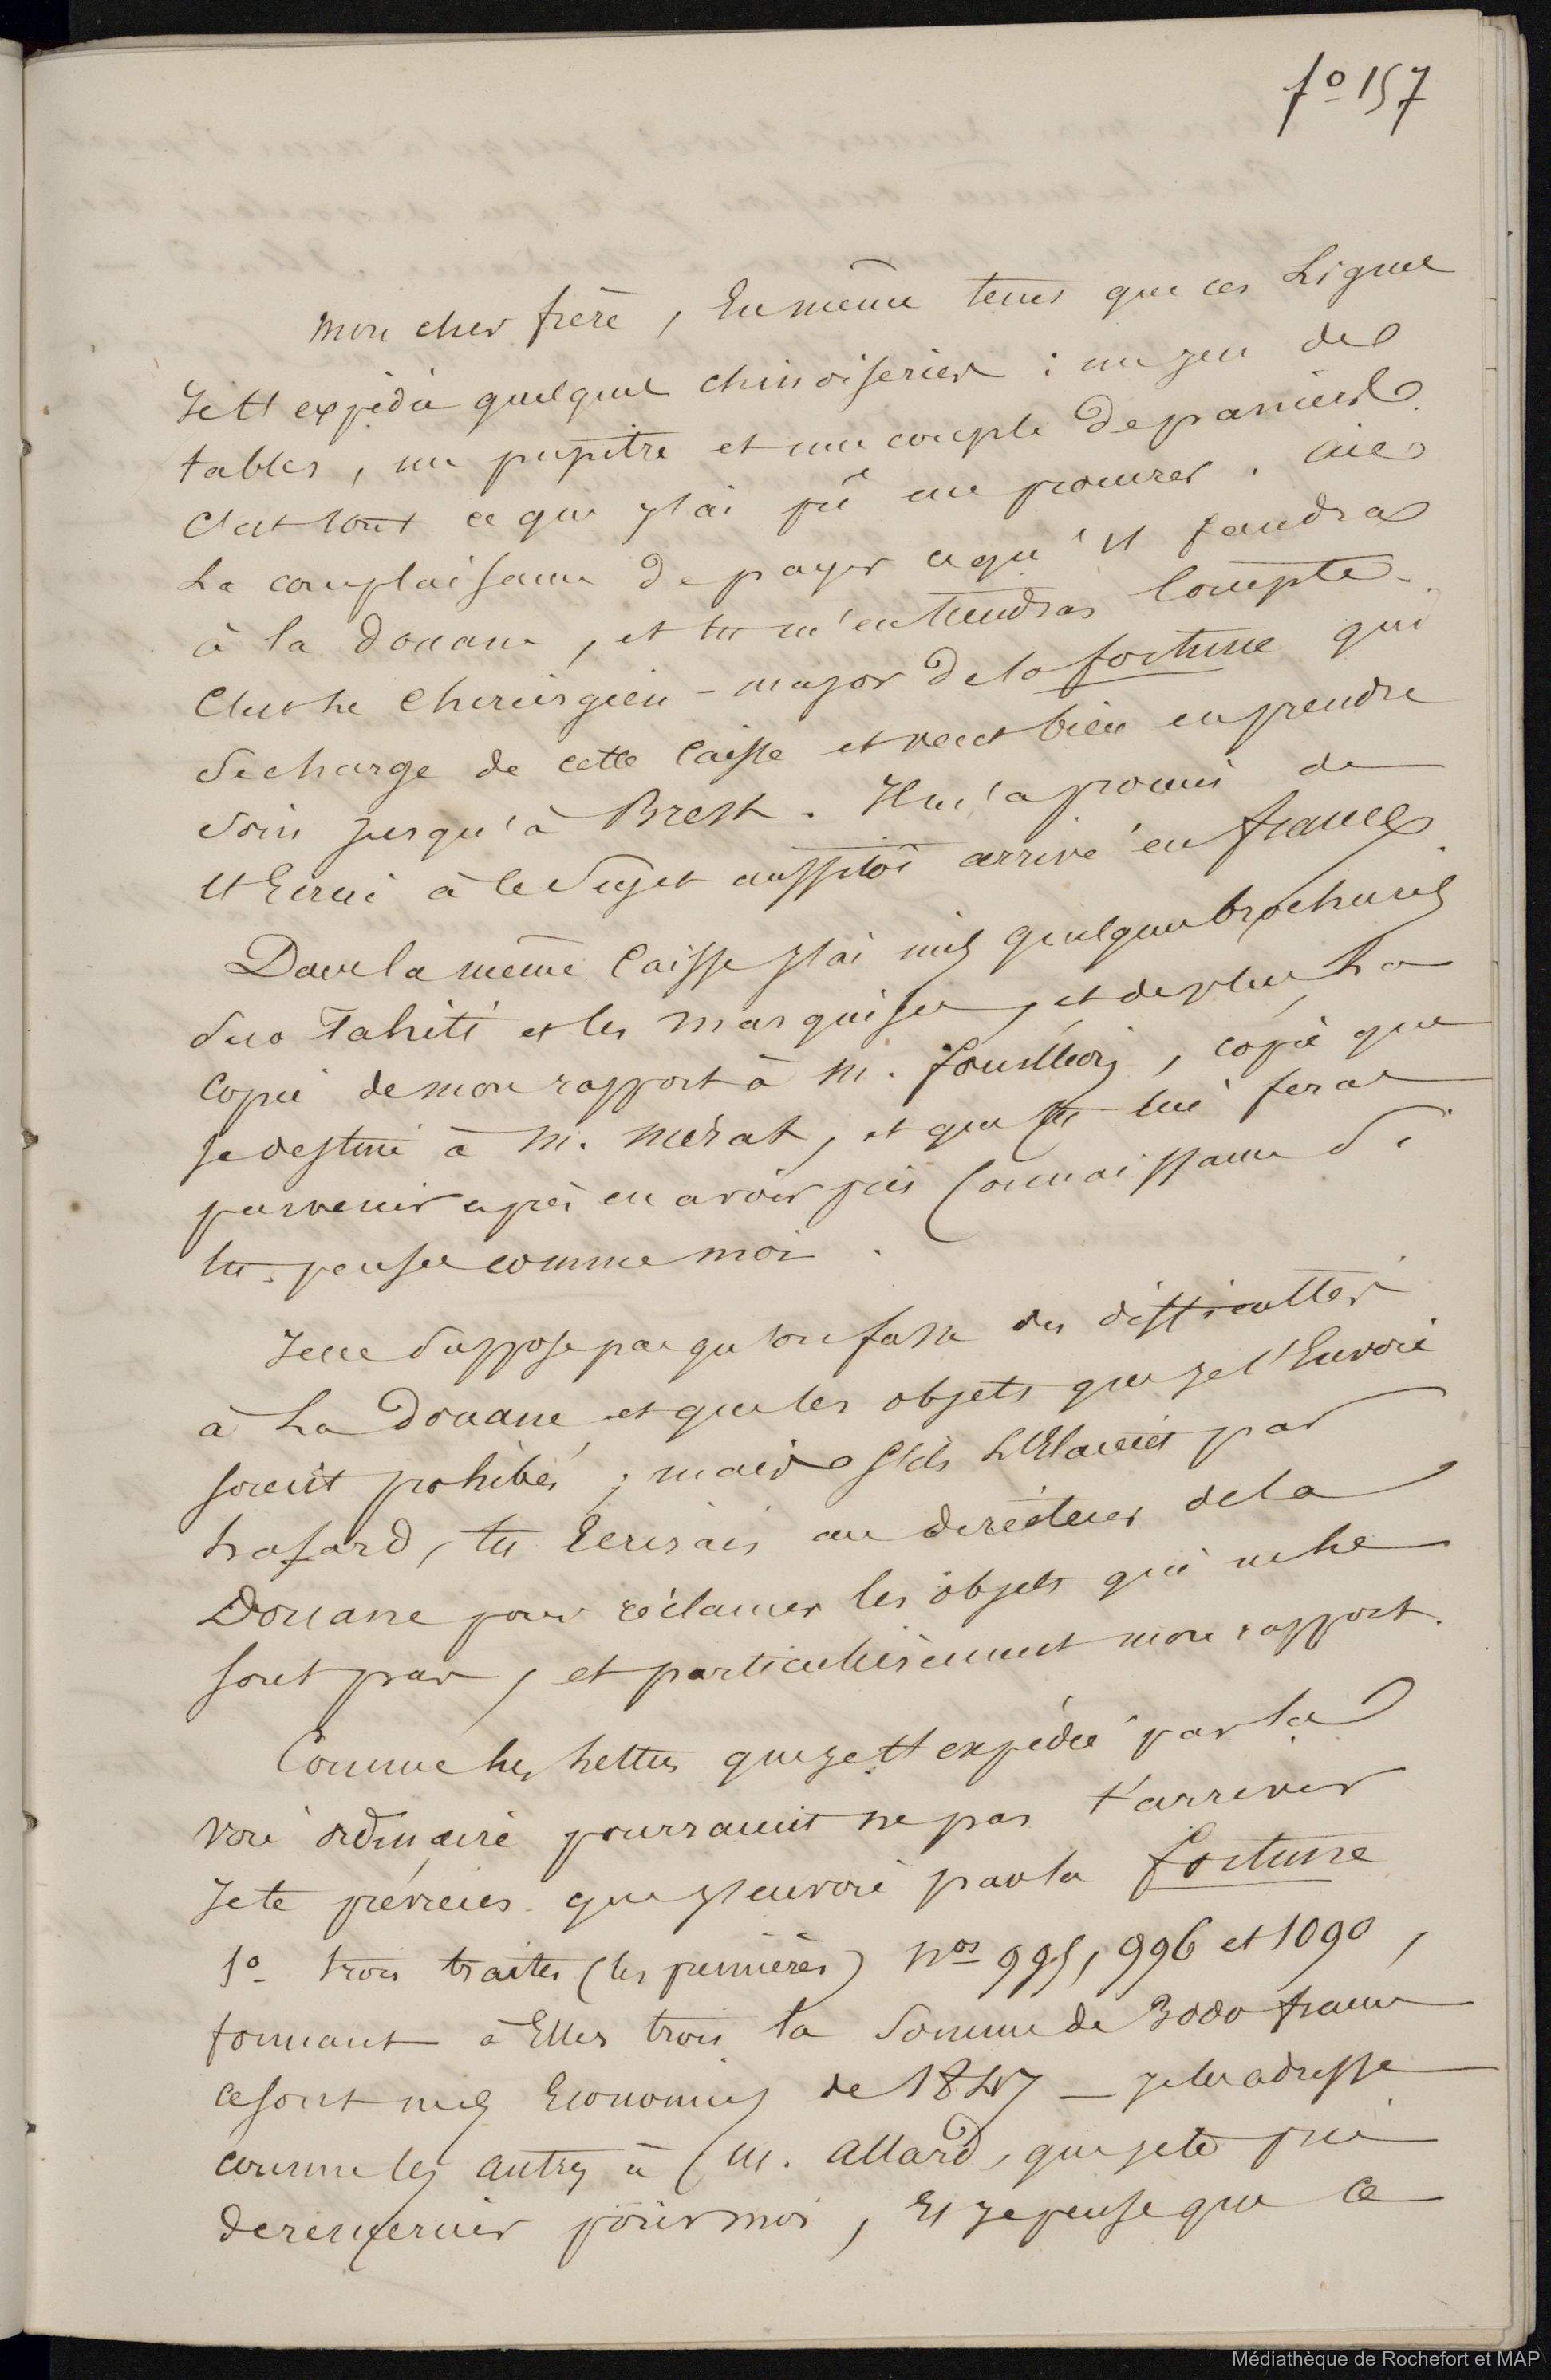 fo 157
Mon cher frère, En même tems que ces Lignes
Je tt expédie quelques chinoiseries : un jeu de
tables, un pupitre et une couple de paniers.
C'est tout ce que j'ai pû me procurer. aies
La complaisance de payer ce qu'il faudra
à la Douane, et tu m'en tiendras Compte.
C'est le Chirurgien-major de la fortune qui
Se charge de cette Caisse et veut bien en prendre
Soin jusqu'à Brest. Il m'a promis de
tt'Ecrire à ce Sujet aussitôt arrivé en france
Dans la même Caisse j'ai mis quelques brochures
Sur Tahiti et les marquises, et de plus La
Copie de mon rapport à M. , copie que
je destine à M. Mérat, et que tu lui feras
parvenir après en avoir pris Connaissance Si
tu penses comme moi.
Je ne Suppose pas qu'on fasse des difficultés
à La Douane et que les objets que je t'Envoie
soient prohibés ; mais S'ils L'Etaient par
hasard, tu Ecrirais au directeur de la
Douane pour réclamer les objets qui ne le
sont pas, et particulièrement mon rapport.
Comme les Lettres que je tt expédie par la
voie ordinaire pourraient ne pas t'arriver
Je te préviens que j'envoie par la fortune
1o trois traites (les premières) nos 995, 996 et 1090,
formant à Elles trois la Somme de 3000 francs
Ce sont mes Economies de 1847 — je les adresse
comme les autres à M. Allard, que je te prie
de remercier pour moi, Et je pense que Ce
Médiathèque de Rochefort et MAP